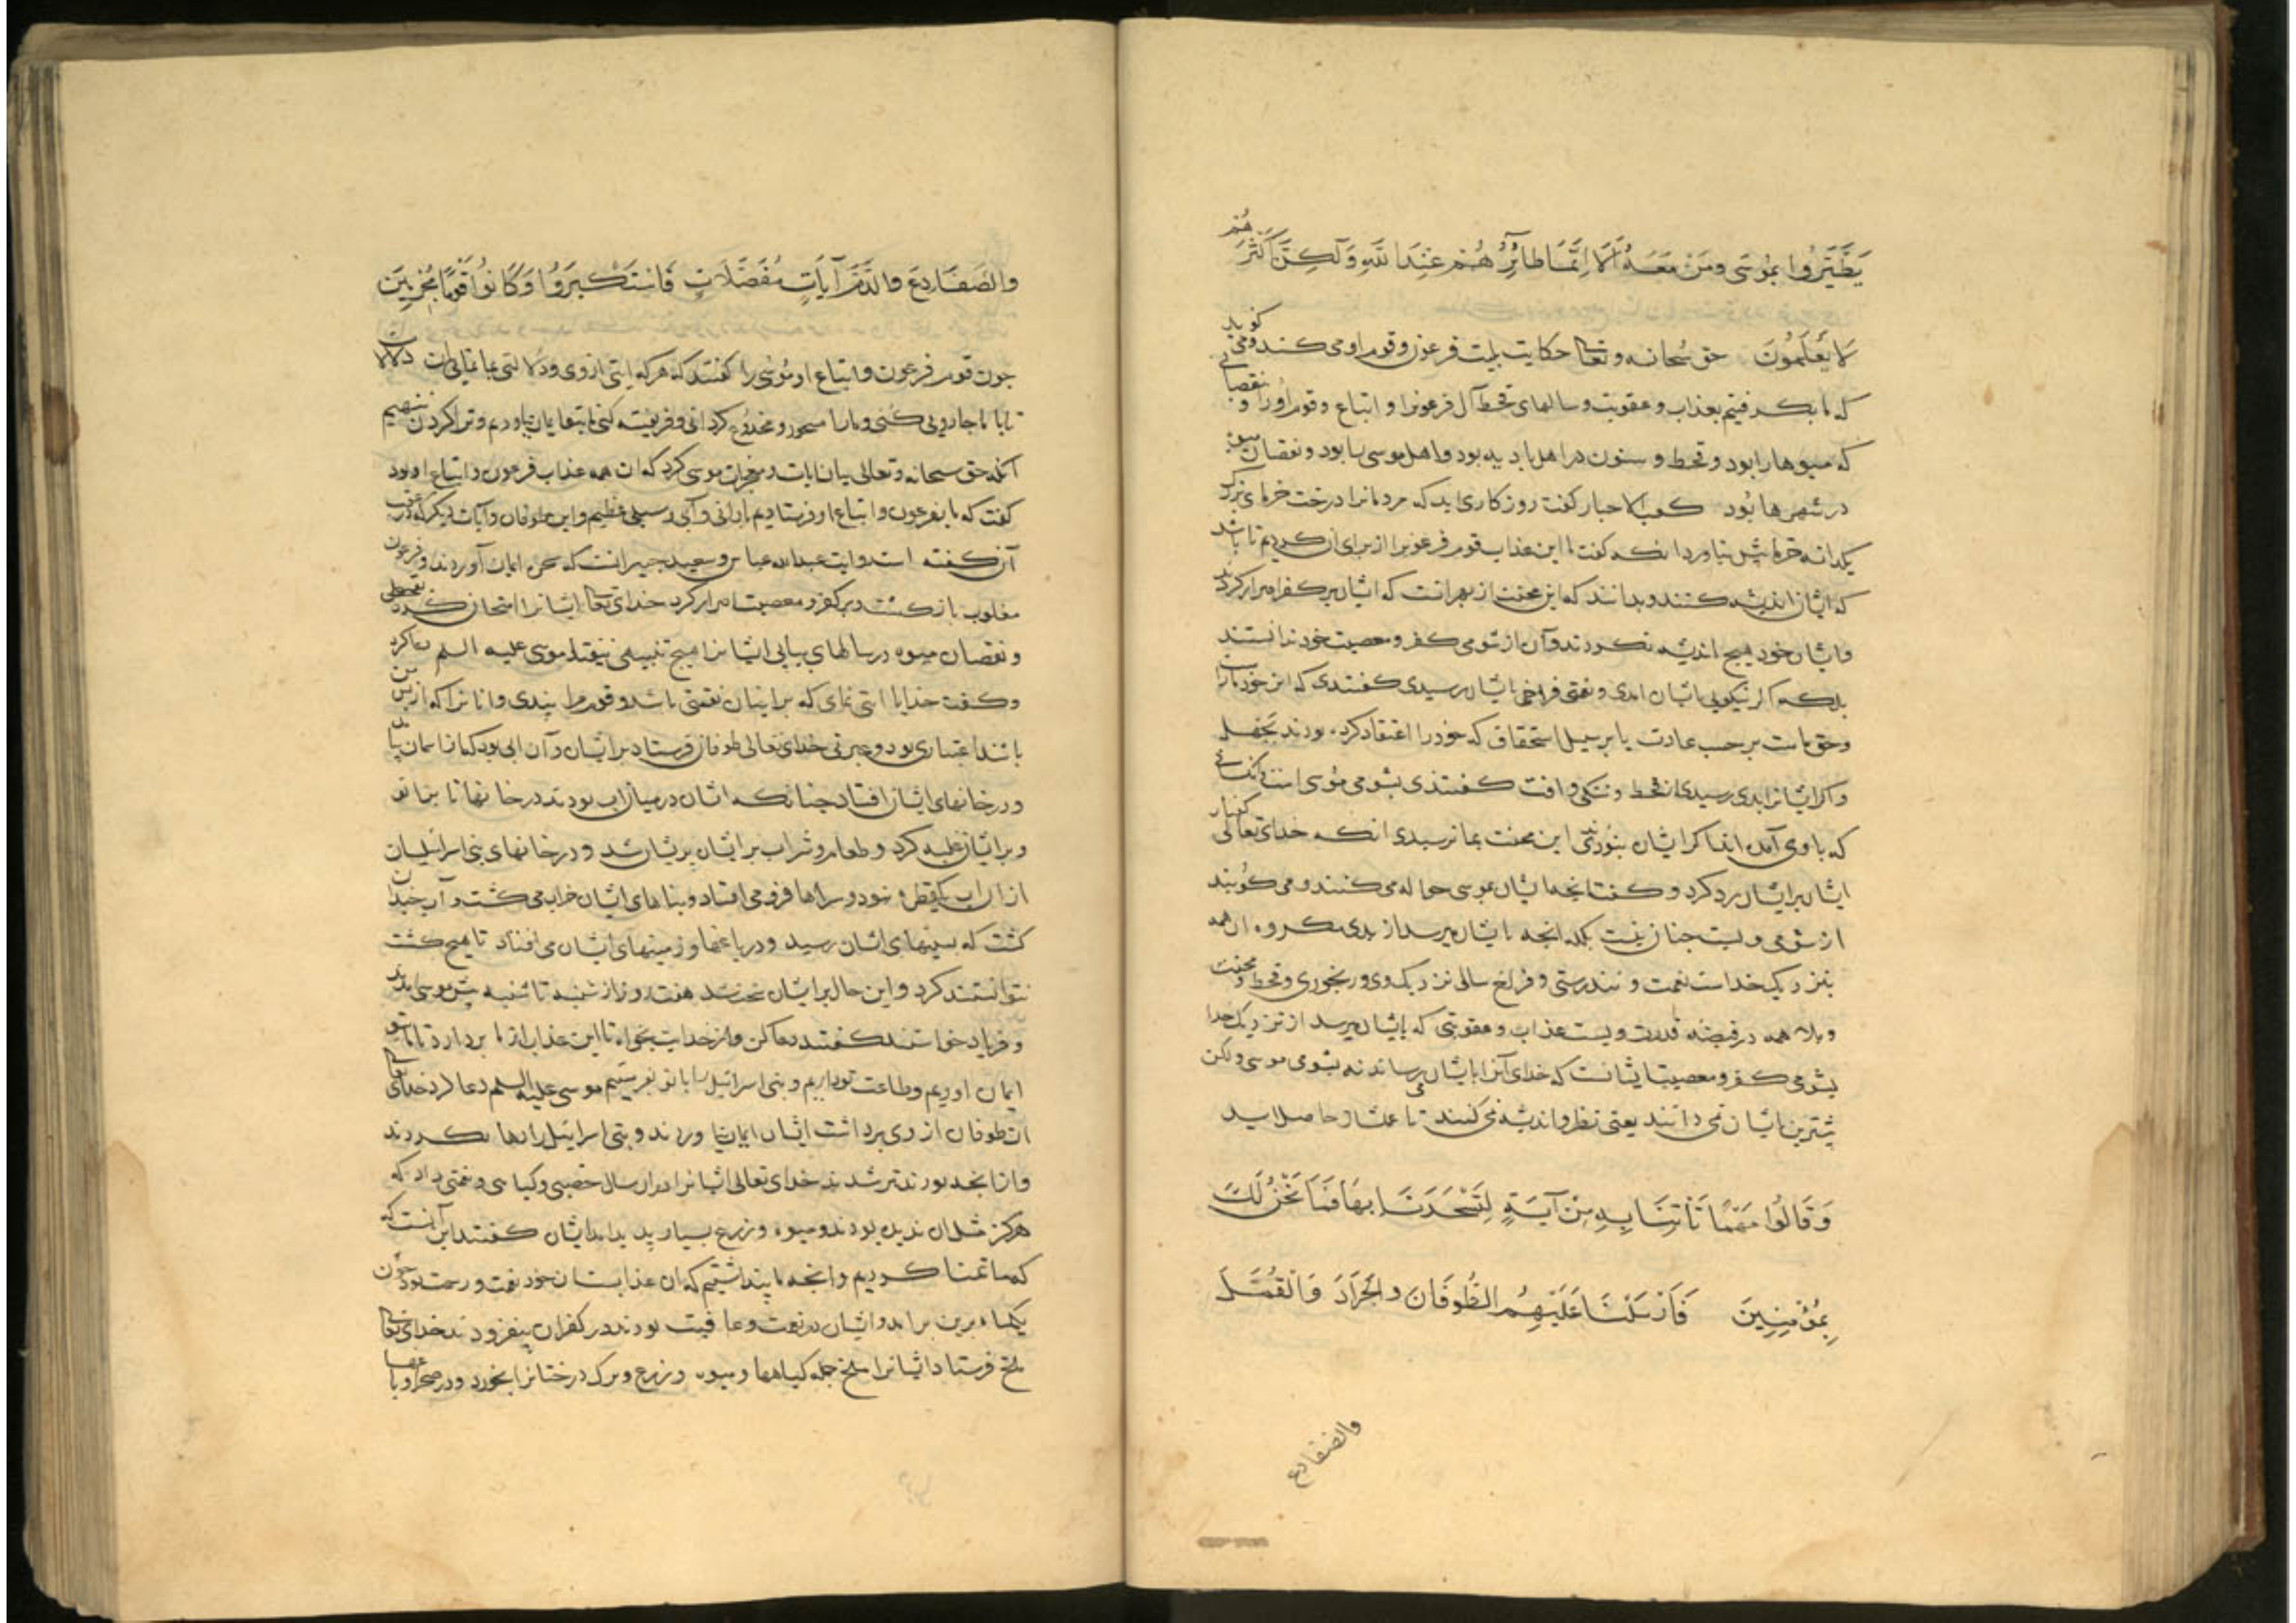 يَطَّيَّرُوا بِمُوسَى وَمَنْ مَعَهُ أَلَا إِنَّمَا طَائِرُهُمْ عِنْدَ اللَّهِ وَلَكِنَّ أَكْثَرَهُمْ
لَا يَعْلَمُونَ حق سبحانه وتعالی حکایت بلیت فرعون وقوم او می کند ومی کوید
که ما بکرفتیم بعذاب وعقوبت وسالهای قحط آل فرعونرا واتباع وقوم اورا ونقصانی
که میوهارا بود وقحط وسنون در اهل بادیه بود واهل موسی را بود ونقصان میوه
در شهرها بود کعب الاحبار کفت روزکاری اید که مردمانرا درخت خرمای بزرک
یکدانه خرما بیش نیاورد انکه کفت ما این عذاب قوم فرعونرا از برای ان کردیم تا باشد
که ایشان اندیشه کنند وبدانند که این محنت از بهر انست که ایشان بر کفر اصرار کردند
وایشان خود هیچ اندیشه نکردند وآن از شومی کفر ومعصیت خود ندانستند
بلکه اکر نیکویی بایشان امدی ونعمتی فراخی بایشان رسیدی کفتندی که این خود ماراست
وحق ماست بر حسب عادت یا بر سبیل استحقاق که خودرا اعتقاد کرده بودند بجهل
واکر ایشانرا بدی رسیدی از قحط وتنکی وافت کفتندی بشومی موسی است وکسانی
که با وی آمدند اکر ایشان نبودندی این محنت بما نرسیدی انکه خدای تعالی کفتار
ایشان بر ایشان رد کرد وکفت انچه ایشان بموسی حواله می کنند ومی کویند
از شومی ویست چنان نیست بلکه انچه بایشان میرسد از بدی ومکروه ان همه
بنزدیک خداست نعمت وتندرستی وفراخ سالی نزدیک وی ورنجوری وقحط ومحنت
وبلا همه در قبضه قدرت ویست عذاب وعقوبتی که بایشان میرسد از نزدیک خدا
بشومی کفر ومعصیت ایشانست که خدای آنرا بایشان می رساند نه بشومی موسی ولکن
بیشترین ایشان نمی دانند یعنی نظر واندیشه نمی کنند تا علمشان حاصل اید
وَقَالُوا مَهْمَا تَأْتِنَا بِهِ مِنْ آيَةٍ لِتَسْحَرَنَا بِهَا فَمَا نَحْنُ لَكَ
بِمُؤْمِنِينَ فَأَرْسَلْنَا عَلَيْهِمُ الطُّوفَانَ وَالْجَرَادَ وَالْقُمَّلَ
والضفادع
وَالضَّفَادِعَ وَالدَّمَ آيَاتٍ مُفَصَّلَاتٍ فَاسْتَكْبَرُوا وَكَانُوا قَوْمًا مُجْرِمِينَ
چون قوم فرعون واتباع او موسی را کفتند که هر که ایتی از وی ودلالتی بما نمایی ان دلالات
تا با ما جادویی کنی ومارا مسحور ومخدوع کردانی وفریفته کنی ما بتو ایمان نیاوردیم وترا کردن ننهیم
انکه حق سبحانه وتعالی بیان ایات ومعجزات موسی کرد که ان همه عذاب فرعون واتباع او بود
کفت که ما بفرعون واتباع او فرستادیم بارانی وآبی وسیلی عظیم واین طوفان وآیات دیکر که در عقب
آن کفته است روایت عبدالله عباس وسعید جبیر انست که سحره ایمان آوردند وفرعون
مغلوب باز کشت وبر کفر ومعصیت اصرار کرد خدای تعالی ایشانرا امتحان کرده بقحطی
ونقصان میوه در سالهای پیاپی ایشانرا هیچ تنبیهی نیفتاد موسی علیه السلم دعا کرد
وکفت خدایا ایتی نمای که بر ایشان نقمتی باشد وقوم مرا پندی وانانرا که از پس من
باشند اعتباری بود وعبرتی خدای تعالی طوفان فرستاد بر ایشان وآن ابی بود که از اسمان بیامد
ودر خانهای ایشان افتاد چنانکه ایشان در میان اب بودند در خانها تا بزانو
وبر ایشان غلبه کرد وطعام وشراب بر ایشان پریشان شد ودر خانهای بنی اسرائیلیان
از ان اب یک قطره نبود وسراها فرو می افتاد وبناهای ایشان خراب می کشت وآب چندان
کشت که بسینهای ایشان رسید ودر باغها وزمینهای ایشان می افتاد تا هیچ کشت
نتوانستند کرد واین حال بر ایشان سخت شد هفت روز از شنبه تا شنبه پیش موسی امدند
وفریاد خواستند کفتند دعا کن واز خدایت بخواه تا این عذاب از ما بردارد تا ما بتو
ایمان اوریم وطاعت تو داریم وبنی اسرائیل را با تو بفرستیم موسی علیه السلم دعا کرد خدای تعالی
ان طوفان از وی برداشت ایشان ایمان نیاوردند وبنی اسرائیل را رها نکردند
واز انچه بودند بتر شدند خدای تعالی ایشانرا در ان سال خصبی وکیاهی ونعمتی داد که
هرکز مثل ان ندیده بودند ومیوه وزرع بسیار پدید امد ایشان کفتند این آنست که
که ما تمنا کردیم وانچه ما پنداشتیم که ان عذابست ان خود نعمت ورحمت بود چون
یکماه برین برامد وایشان در نعمت وعافیت بودند در کفران بیفزودند خدای تعالی
ملخ فرستاد ایشانرا ملخ جمله کیاهها ومیوه وزرع وبرک درختانرا بخورد ودر صحرا وباغها